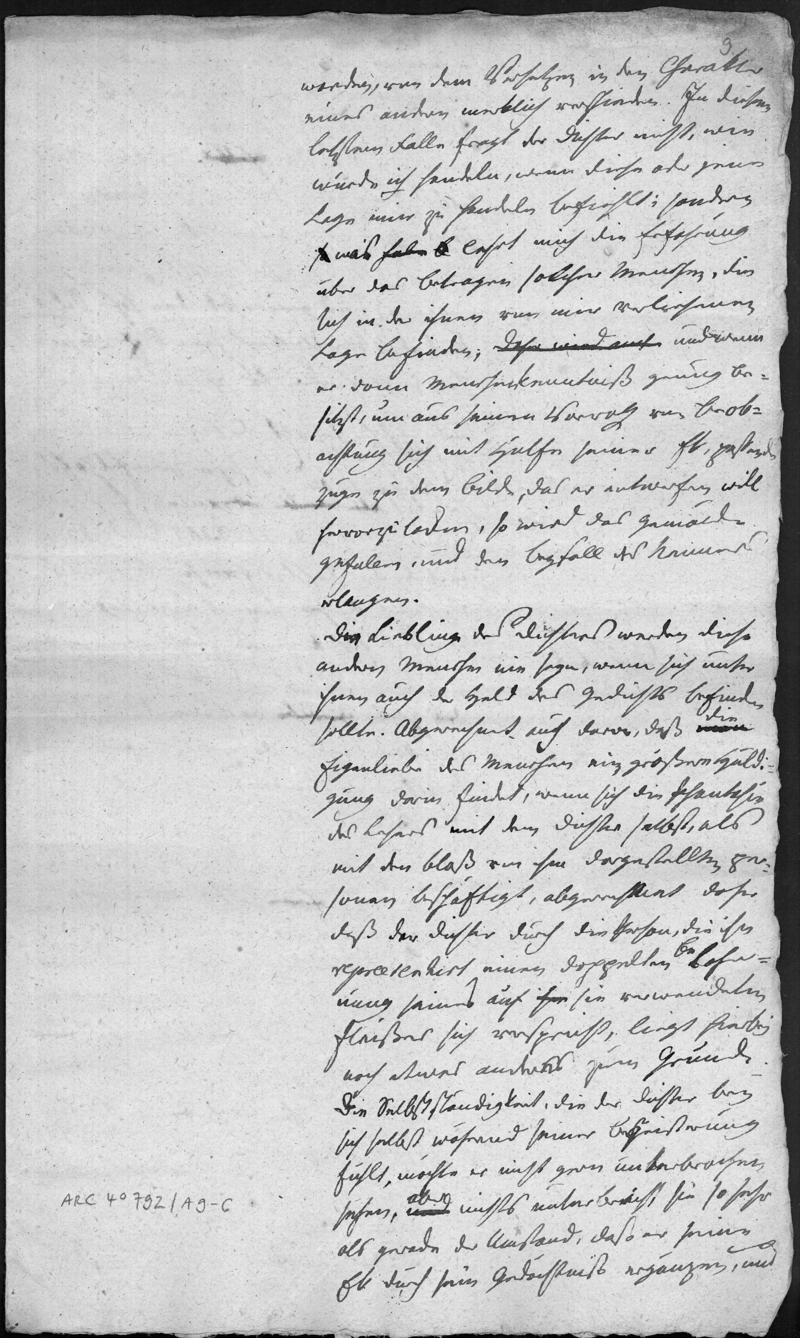 9.
werden, von dem Versetzen in den Charakter
eines andern merklich verschieden. In diesem
letztern Falle fragt der Dichter nicht, wie
würde ich handeln, wenn diese oder jene
Lage mir zu handeln befiehlt; sondern
was habe lehrt mich die Erfahrung
über das betragen solcher Menschen, die
sich in der ihnen von mir verliehenen
Lage befinden; daher wird auch und wenn
er dann Menschenkenntniß genug be-
sitzt, um aus seinem Vorrath von beob-
achtung sich mit Hülfe seiner passende
züge zu dem bilde, das er entwerfen will
hervorzu, so wird das Gemälde
gefallen, und den beyfall des Kenners
erlangen.
Die Lieblinge des Dichters werden diese
andern Menschen nie seyn, wenn sich unter
ihnen auch der Held des Gedichts befinden
sollte. Abgerechnet auch davon, daß die
Eigenliebe des Menschen eine größere Huldi-
gung darin findet, wenn sich die Phantasie
des Lesers mit dem Dichter selbst, als
mit den bloß von ihm dargestellten per-
sonen beschäftigt, abgerechnet daher
daß der Dichter durch die Person, die ihn
representirt einen doppelten beloh-
nung seines auf sie verwendeten
Fleißes sich verspricht, liegt hierbei
noch etwas anders zum Grunde.
Die Selbstständigkeit, die der Dichter bey
sich selbst während seiner begeisterung
fühlt, möchte er nicht gern unterbrochen
sehen, aber nichts unterbricht sie so sehr
als gerade der Umstand, daß er seine
durch sein Gedächtniß ergänzen, und
ARC 4° 792/A9-6